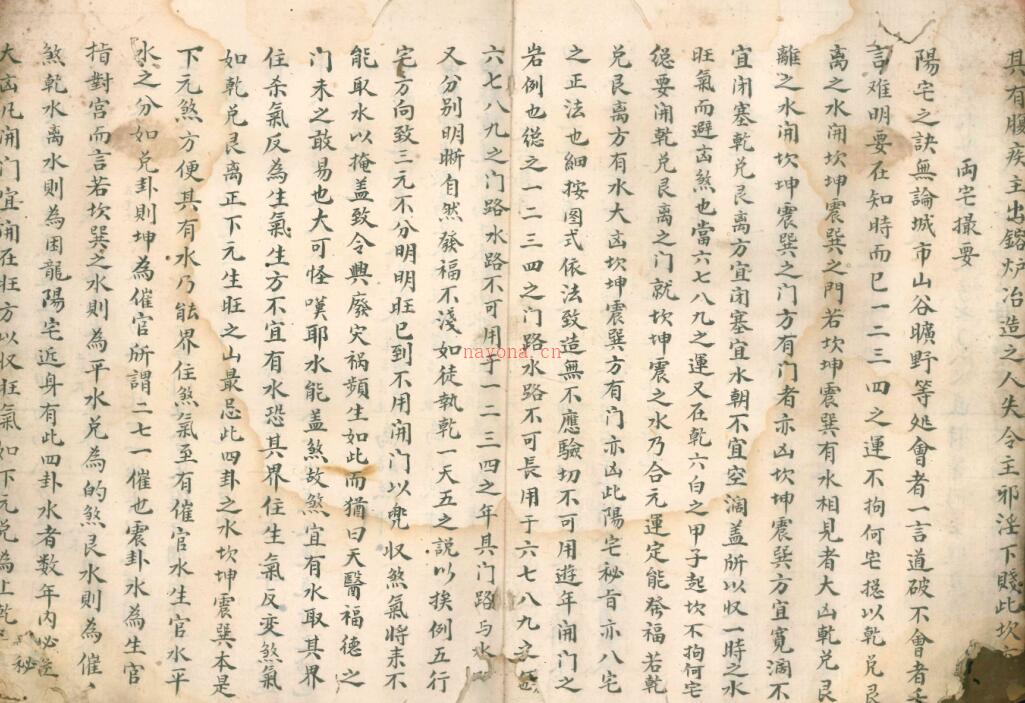 其有腹疾主出鎔炉冶造之人失令主邪淫下賤此坎
両宅撮要
陽宅之訣無論城市山谷曠野等処會者一言道破不會者
言难明要在知時而已一二三四之運不拘何宅揔以乾兑艮
离之水開坎坤震巽之門若坎坤震巽有水相見者大凶乾兑艮
離之水開坎坤震巽之门方有门者亦凶坎坤震巽方宜寬濶不
宜闭塞乾兑艮离方宜闭塞宜水朝不宜空濶盖所以収一時之水
旺氣而避凶煞也當六七八九之運又在乾六白之甲子起坎不拘何宅
緫要開乾兑艮离之门就坎坤震之水乃合元運定能發福若乾
兑艮离方有水大凶坎坤震巽方有门亦凶此陽宅秘旨亦八宅
之正法也細按图式依法致造無不應驗切不可用遊年開门之
岩例也緫之一二三四之门路水路不可長用于六七八九之
六七八九之门路水路不可用于一二三四之年具门路与水
又分别明晰自然發福不淺如徒執乾一天五之説以挨例五行
宅方向致三元不分明明旺已到不用開门以兜収煞氣将未不
能取水以掩盖致令興廢灾禍頻生如此而猶曰天醫福德之
门未之敢易也大可怪嘆耶水能盖煞故煞宜有水取其界
住杀氣反為生氣生方不宜有水恐其界住生氣反变煞氣
如乾兑艮离正下元生旺之山最忌此四卦之水坎坤震巽本是
下元煞方便其有水乃能界住煞氣至有催官水生官水平
水之分如兑卦則坤為催官所謂二七一催也震卦水為生官
指對宫而言若坎巽之水則為平水兑為的煞艮水則為催
煞乾水离水則為困龍陽宅近身有此四卦水者数年内必
大凶凡開门宜開在旺方以収旺氣如下元兑為上乾
秘
nayona.cn